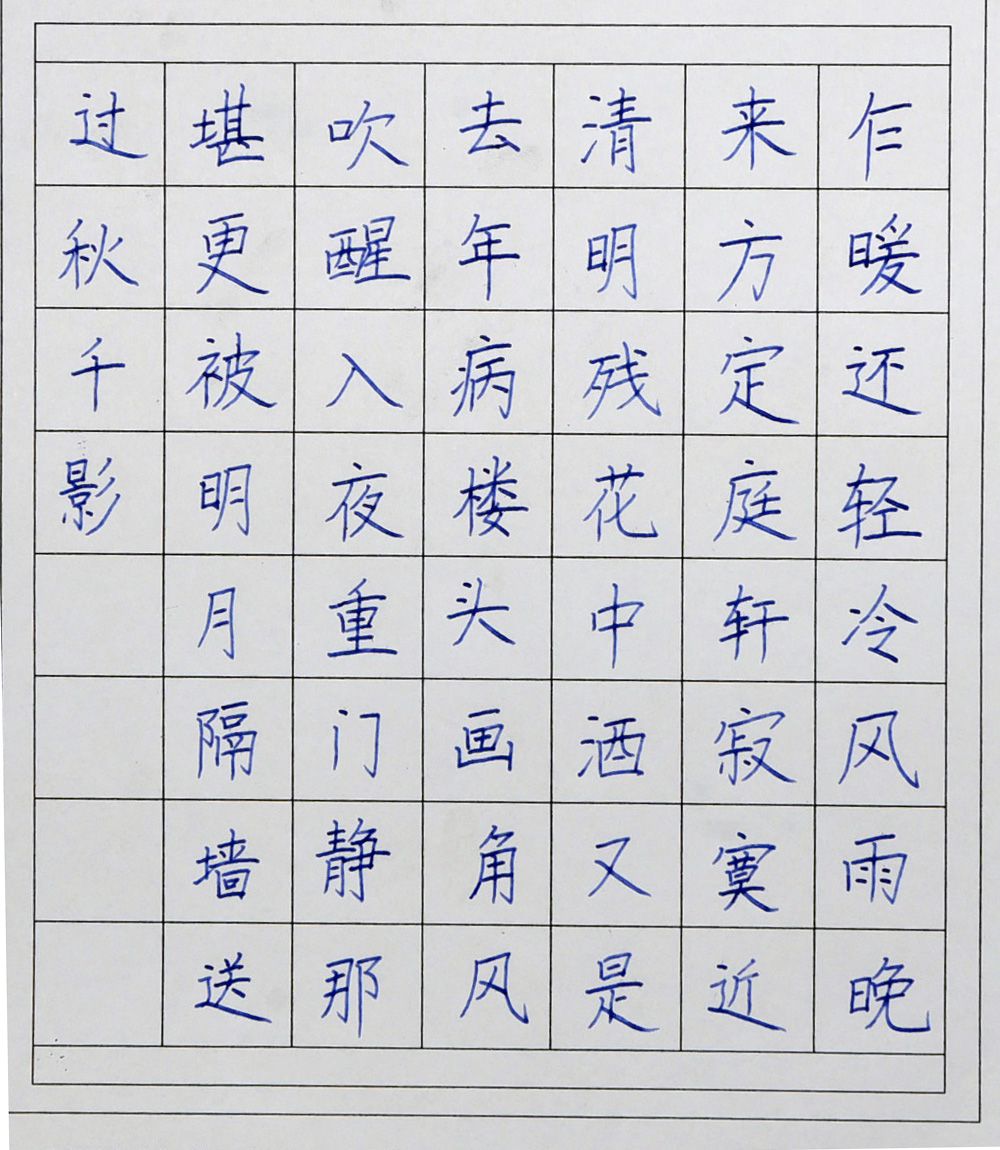 乍暖还轻冷风雨晚
来方定庭轩寂寞近
清明残花中酒又是
去年病楼头画角风
吹醒入夜重门静那
堪更被明月隔墙送
过秋千影